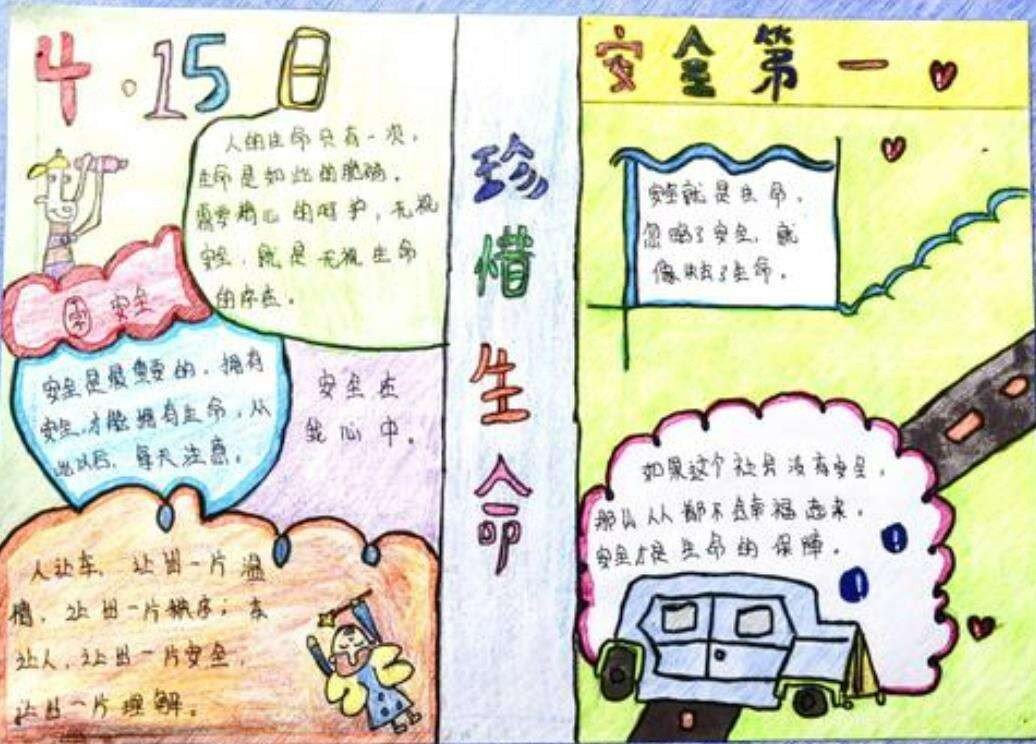 4·15日
人的生命只有一次,
生命是如此的脆弱。
需要精心的呵护,无视
安全,就是无视生命
的存在。
零 安全
安全是最重要的,拥有
安全,才能拥有生命,从
此以后,每天注意。
安全在
我心中。
人让车,让出一片温
情,让出一片秩序;车
让人,让出一片安全,
让出一片理解。
珍惜生命
安全第一
安全就是生命,
忽略了安全,就
像失去了生命。
如果这个社会没有安全,
那么人人都不会幸福起来,
安全才是生命的保障。
!
!